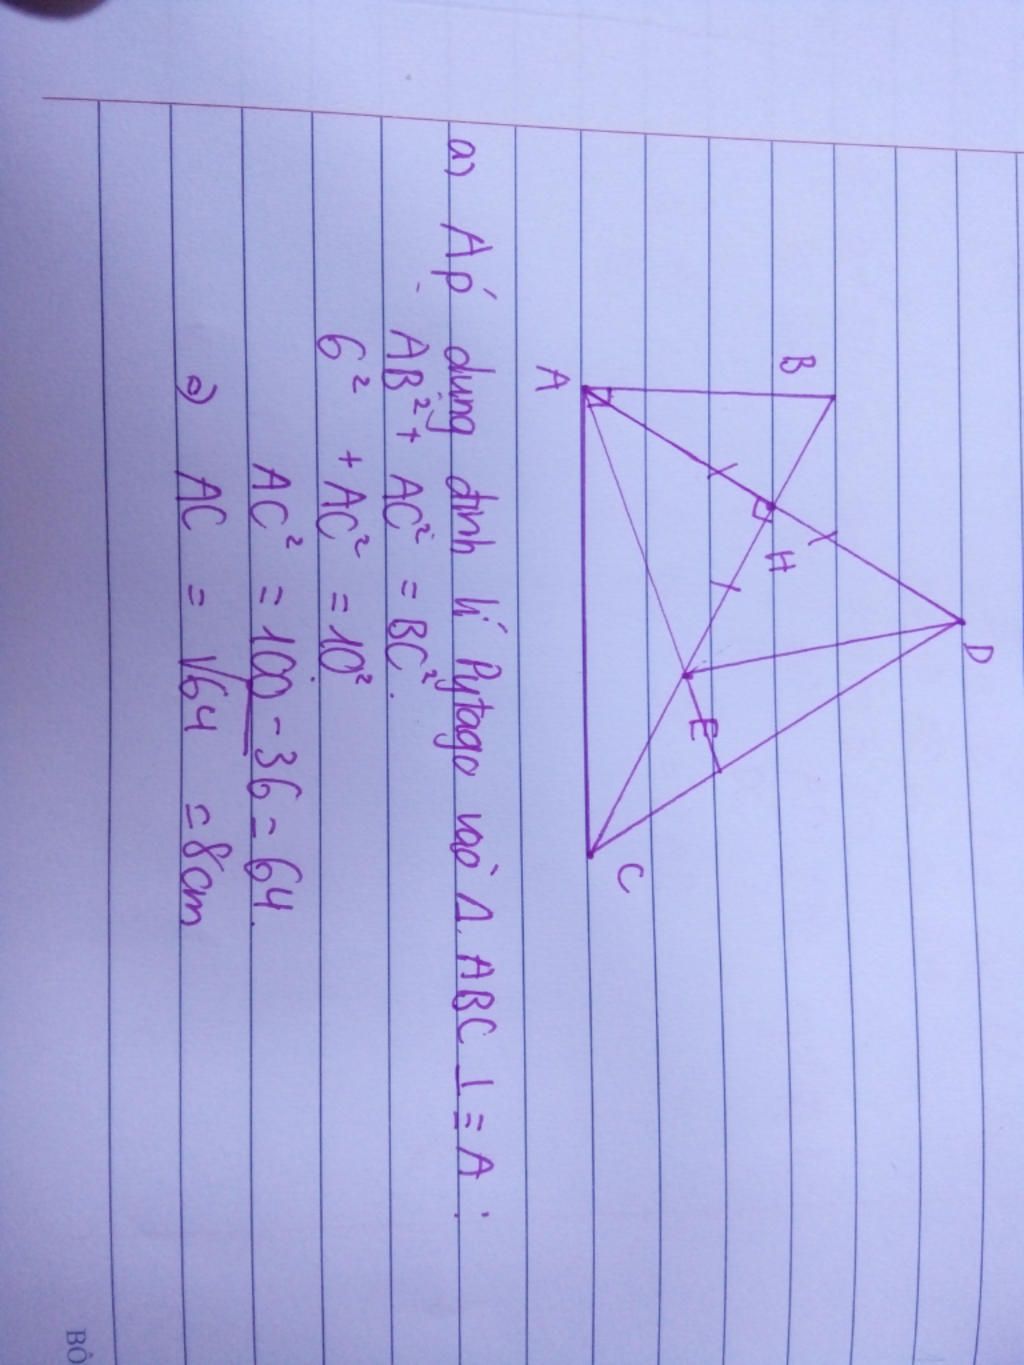 B
D
H
E
A
C
a) Áp dụng định lí Pytago vào Δ ABC ⊥ = A :
AB² + AC² = BC².
6² + AC² = 10²
AC² = 100 - 36 = 64.
AC = √64 = 8cm
BÔ